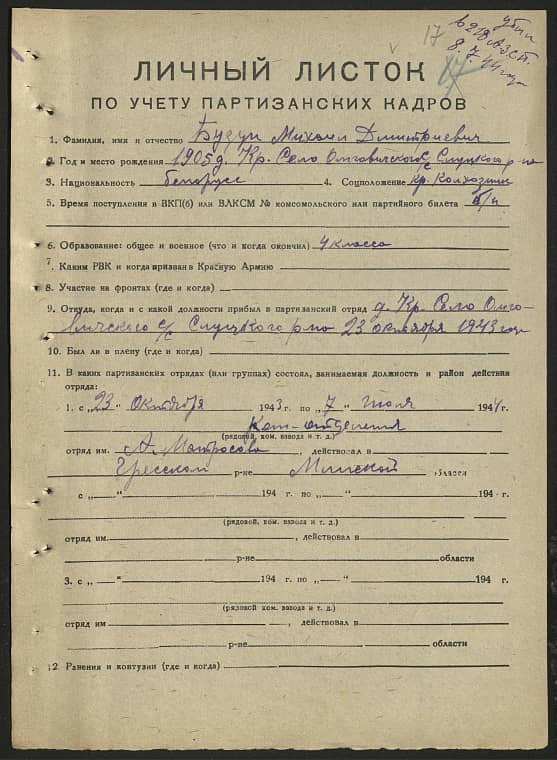 17 убит
в 218 АЗСП.
8.7.44 года
17
ЛИЧНЫЙ ЛИСТОК
ПО УЧЕТУ ПАРТИЗАНСКИХ КАДРОВ
1. Фамилия, имя и отчество Михаил Дмитриевич
2. Год и место рождения 1905 д. Кр. Село Омговичского С/с Слуцкого р-на
3. Национальность белорусс 4. Соцположение кр. Колхозник
5. Время поступления в ВКП(б) или ВЛКСМ № комсомольского или партийного билета б/п
6. Образование: общее и военное (что и когда окончил) 4 класса
7. Каким РВК и когда призван в Красную Армию
8. Участие на фронтах (где и когда)
9. Откуда, когда и с какой должности прибыл в партизанский отряд д. Кр. Село Омго-
вичского с/с Слуцкого р-на 23 октября 1943 года
10. Был ли в плену (где и когда)
11. В каких партизанских отрядах (или группах) состоял, занимаемая должность и район действия
отряда:
1. с „23" Октября 1943 г. по „7" июля 1944 г.
Ком-отделения
(рядовой, ком. взвода и т. д.)
отряд им. А. Матросова, действовал в
Гресском р-не Минской области
с „ " 194 г. по „ " 194 г.
(рядовой, ком. взвода и т. д.)
отряд им. , действовал в
р-не области
3. с „ " 194 г. по „ " 194 г.
(рядовой ком. взвода и т. д.)
отряд им , действовал в
р-не области
12. Ранения и контузии (где и когда)